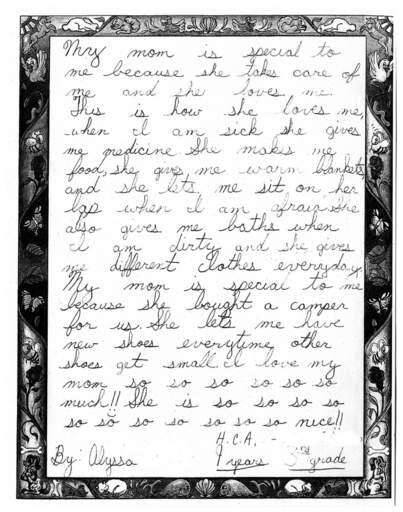 My mom is special to
me because she takes care of
me and she loves me.
This is how she loves me,
when I am sick she gives
me medicine. She makes me
food, she gives me warm blankets
and she lets me sit on her
lap when I am afraid. She
also gives me baths when
I am dirty and she gives
me different clothes everyday.
My mom is special to me
because she bought a camper
for us. She lets me have
new shoes everytime other
shoes get small. I love my
mom so so so so so so
much!! She is so so so so
so so so so so so so nice!!
H.C.A. -
By: Alyssa 9 years 3rd grade